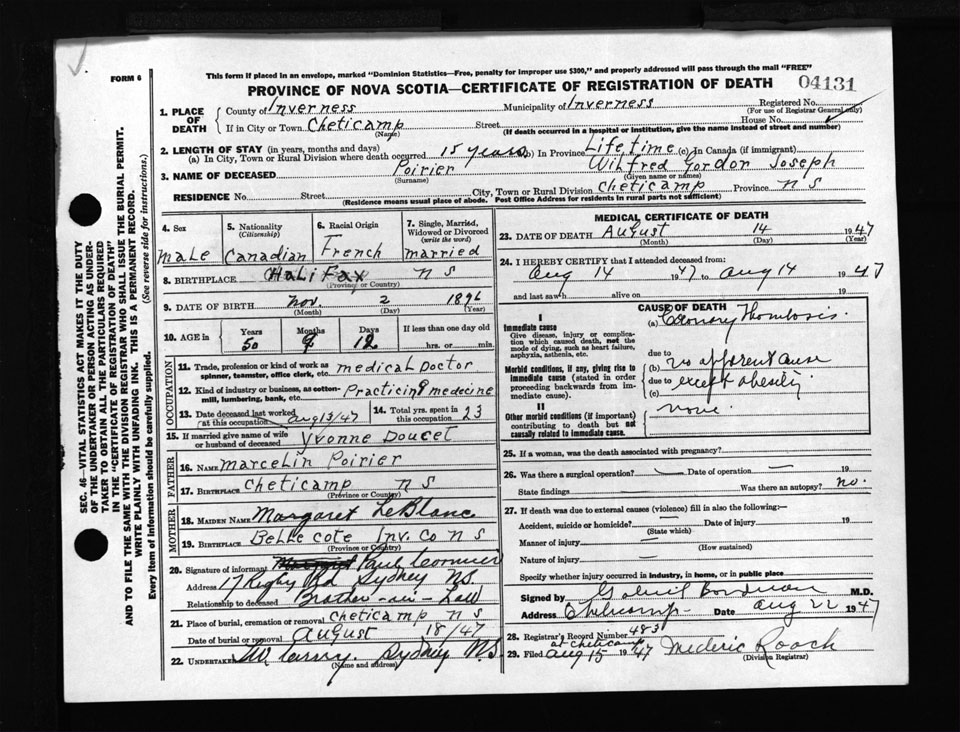 FORM 6
This form if placed in an envelope, marked "Dominion Statistics—Free, penalty for improper use $300," and properly addressed will pass through the mail "FREE"
PROVINCE OF NOVA SCOTIA—CERTIFICATE OF REGISTRATION OF DEATH 04131
1. PLACE OF DEATH
County of Inverness Municipality of Inverness Registered No.
(For use of Registrar General only)
If in City or Town Cheticamp Street House No.
(Name) (If death occurred in a hospital or institution, give the name instead of street and number)
2. LENGTH OF STAY (in years, months and days)
(a) In City, Town or Rural Division where death occurred 15 years (b) In Province Lifetime (c) In Canada (if immigrant)
3. NAME OF DECEASED Poirier Wilfred Gordon Joseph
(Surname) (Given name or names)
RESIDENCE No. Street City, Town or Rural Division Cheticamp Province N S
(Residence means usual place of abode. Post Office Address for residents in rural parts not sufficient)
4. Sex
Male
5. Nationality
(Citizenship)
Canadian
6. Racial Origin
French
7. Single, Married, Widowed or Divorced
(write the word)
married
8. BIRTHPLACE Halifax N S
(Province or Country)
9. DATE OF BIRTH Nov. 2 1896
(Month) (Day) (Year)
10. AGE in Years Months Days If less than one day old
50 9 12 hrs. or min.
OCCUPATION
11. Trade, profession or kind of work as spinner, teamster, office clerk, etc. medical Doctor
12. Kind of industry or business, as cotton-mill, lumbering, bank, etc. Practicing medecine
13. Date deceased last worked at this occupation Aug 13/47
14. Total yrs. spent in this occupation 23
15. If married give name of wife or husband of deceased Yvonne Doucet
FATHER
16. NAME Marcelin Poirier
17. BIRTHPLACE Cheticamp N S
(Province or Country)
MOTHER
18. MAIDEN NAME Margaret LeBlanc
19. BIRTHPLACE Belle cote Inv. Co N S
(Province or Country)
20. Signature of informant Margaret Paul Cormier
Address 17 Rigby Rd Sydney NS
Relationship to deceased Brother-in-Law
21. Place of burial, cremation or removal Cheticamp N S
Date of burial or removal August 18/47
22. UNDERTAKER Sydney NS
(Name and address)
MEDICAL CERTIFICATE OF DEATH
23. DATE OF DEATH August 14 1947
(Month) (Day) (Year)
24. I HEREBY CERTIFY that I attended deceased from:
Aug 14 1947 to Aug 14 1947
and last saw alive on 19
CAUSE OF DEATH
I
Immediate cause
Give disease, injury or complication which caused death, not the mode of dying, such as heart failure, asphyxia, asthenia, etc.
(a) Coronary Thombosis.
due to
Morbid conditions, if any, giving rise to immediate cause (stated in order proceeding backwards from immediate cause).
(b) no apparent cause
due to except obesity
(c)
II
Other morbid conditions (if important) contributing to death but not causally related to immediate cause.
none.
25. If a woman, was the death associated with pregnancy?
26. Was there a surgical operation? — Date of operation — 19
State findings Was there an autopsy? no.
27. If death was due to external causes (violence) fill in also the following:—
Accident, suicide or homicide? — Date of injury 19
(State which)
Manner of injury —
(How sustained)
Nature of injury —
Specify whether injury occurred in industry, in home, or in public place
Signed by M.D.
Address Cheticamp Date Aug 22 1947
28. Registrar's Record Number 483
at Cheticamp
29. Filed Aug 15 1947 Mederic Roach
(Division Registrar)
SEC. 46—VITAL STATISTICS ACT MAKES IT THE DUTY
OF THE UNDERTAKER OR PERSON ACTING AS UNDER-
TAKER TO OBTAIN ALL THE PARTICULARS REQUIRED
IN THE "CERTIFICATE OF REGISTRATION OF DEATH"
AND TO FILE THE SAME WITH THE DIVISION REGISTRAR WHO SHALL ISSUE THE BURIAL PERMIT.
WRITE PLAINLY WITH UNFADING INK. THIS IS A PERMANENT RECORD.
Every item of information should be carefully supplied. (See reverse side for instructions.)